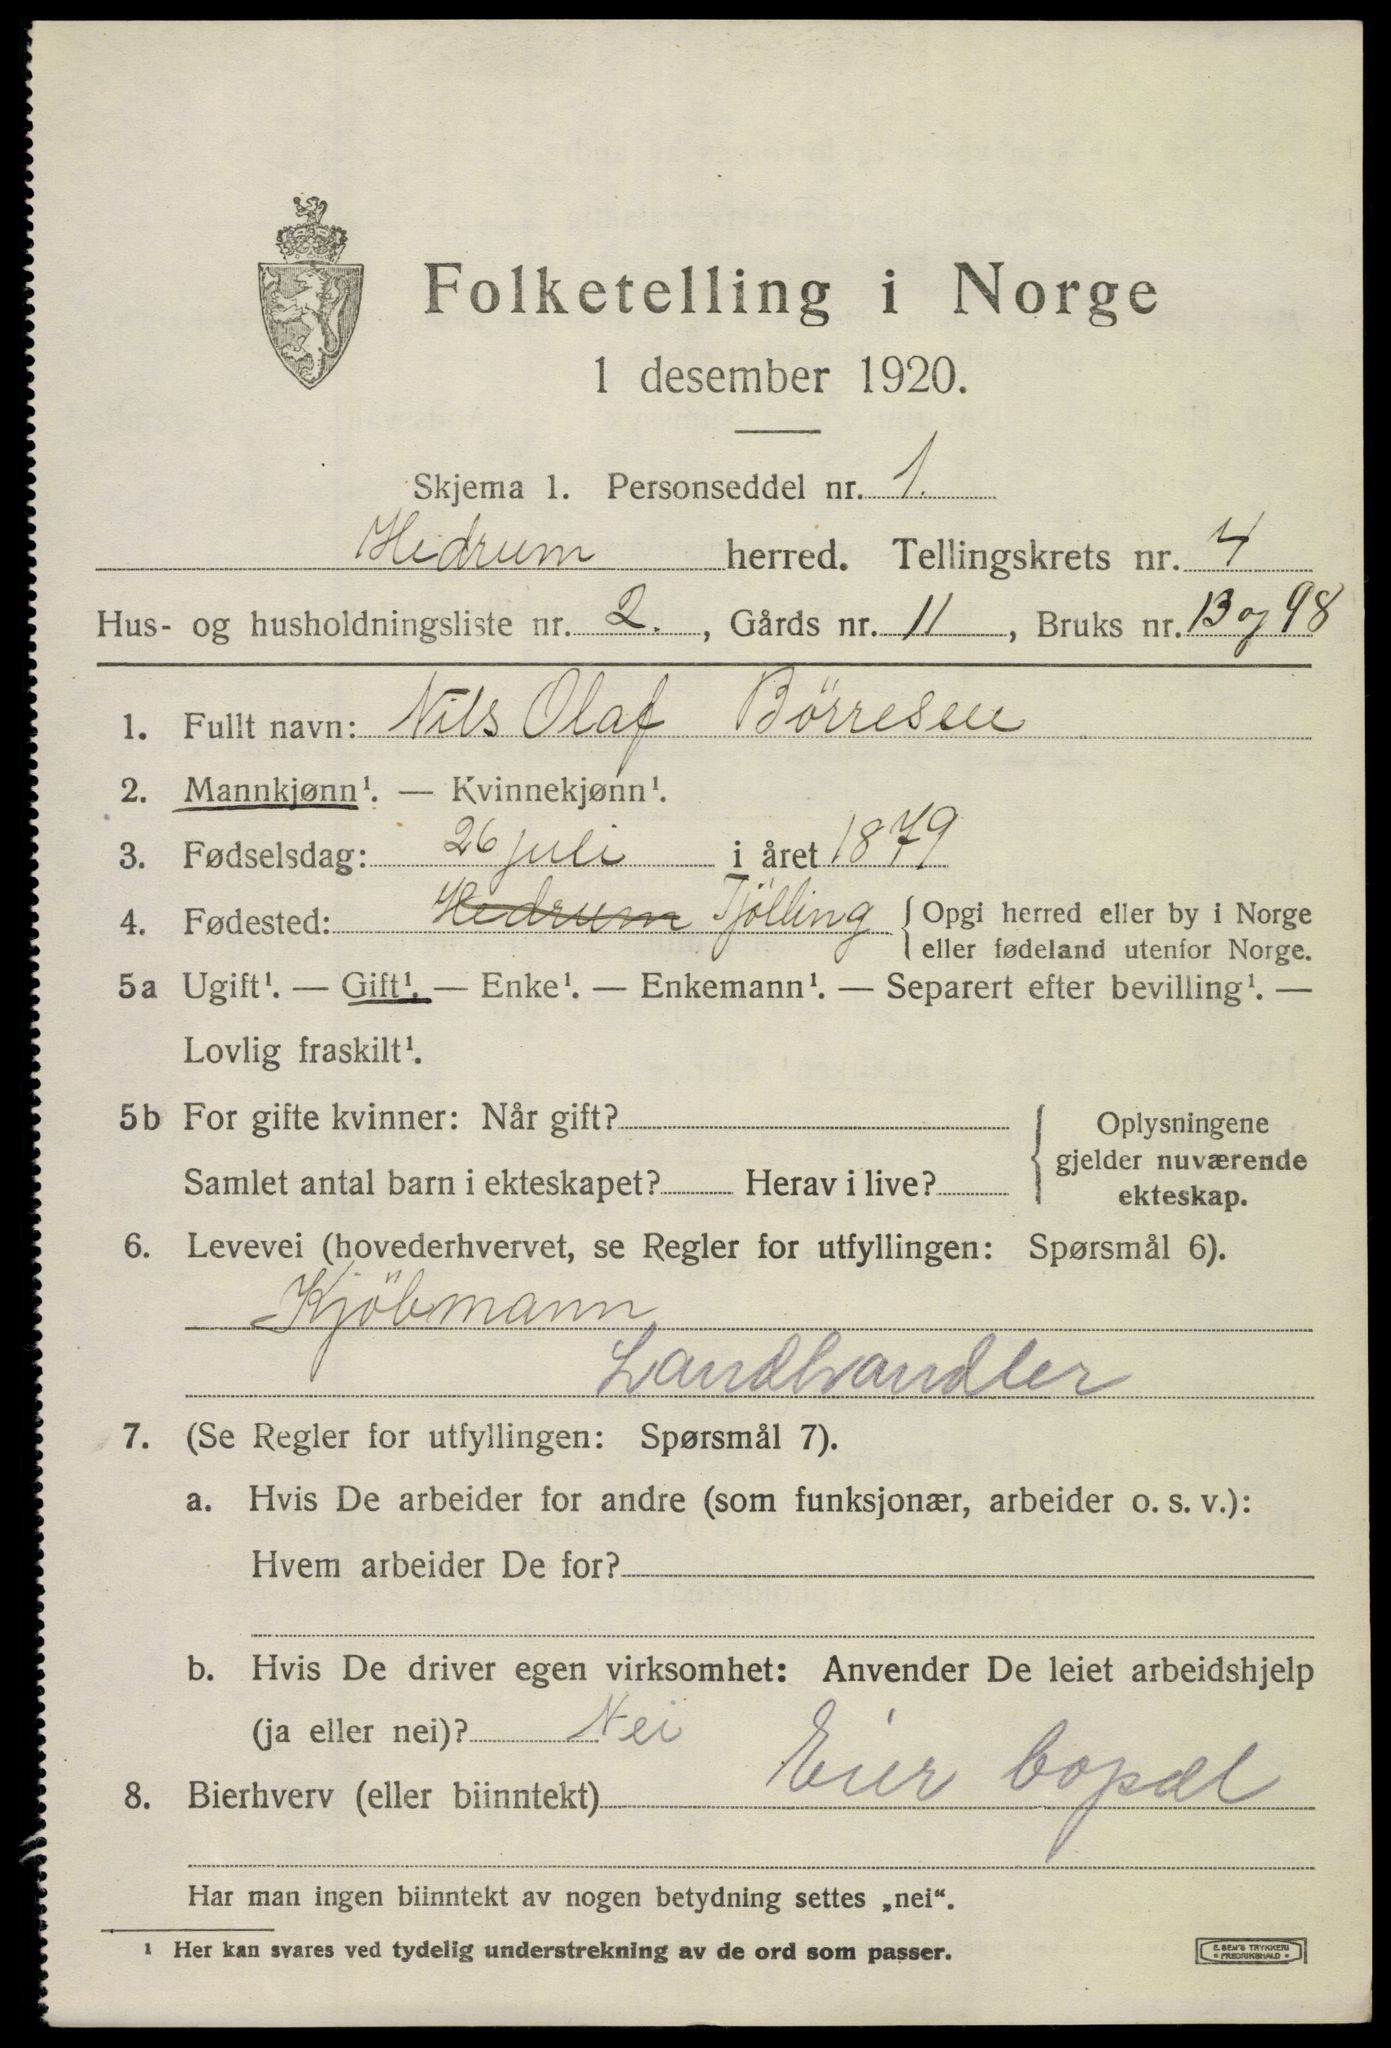 Folketelling i Norge
1 desember 1920.
Skjema 1. Personseddel nr. 1.
Hedrum herred. Tellingskrets nr. 4
Hus- og husholdningsliste nr. 2., Gårds nr. 11, Bruks nr. 13 og 98
1. Fullt navn: Nils Olaf Börresen
2. Mannkjønn¹. — Kvinnekjønn¹.
3. Fødselsdag: 26 juli i året 1879
4. Fødested: Hedrum Tjölling { Opgi herred eller by i Norge
eller fødeland utenfor Norge.
5a Ugift¹. — Gift¹. — Enke¹. — Enkemann¹. — Separert efter bevilling¹. —
Lovlig fraskilt¹.
5b For gifte kvinner: Når gift?
Samlet antal barn i ekteskapet? Herav i live?
Oplysningene
gjelder nuværende
ekteskap.
6. Levevei (hovederhvervet, se Regler for utfyllingen: Spørsmål 6).
Kjöbmann
Landhandler
7. (Se Regler for utfyllingen: Spørsmål 7).
a. Hvis De arbeider for andre (som funksjonær, arbeider o. s. v.):
Hvem arbeider De for?
b. Hvis De driver egen virksomhet: Anvender De leiet arbeidshjelp
(ja eller nei)? Nei
8. Bierhverv (eller biinntekt) Eier bopæl
Har man ingen biinntekt av nogen betydning settes „nei“.
¹ Her kan svares ved tydelig understrekning av de ord som passer.
E. SEM'S TRYKKERI
FREDRIKSHALD